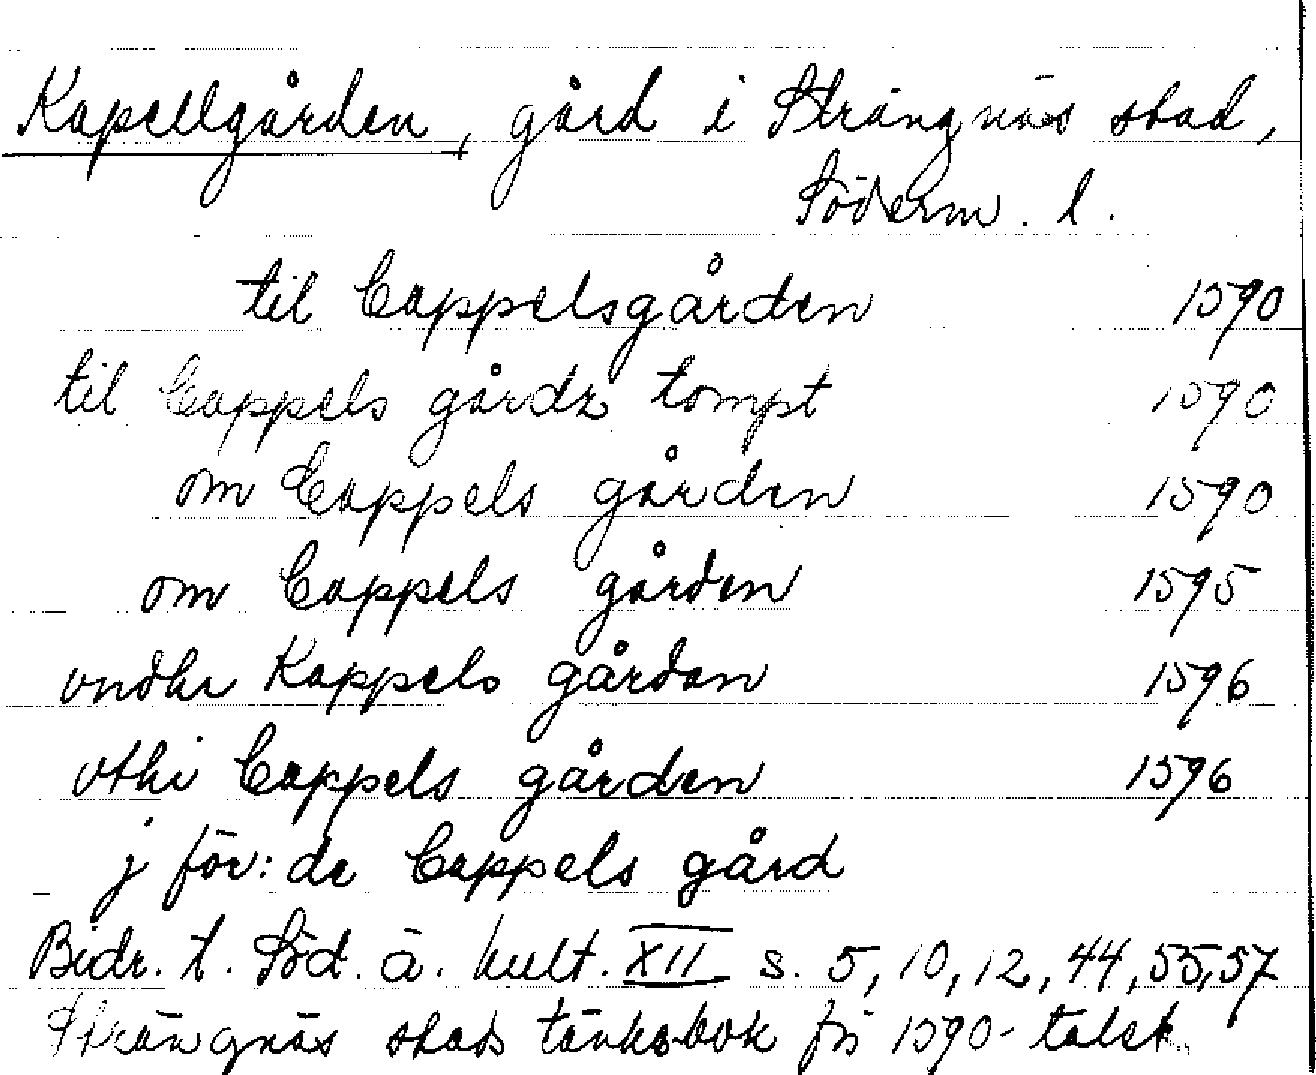 Kapellgården, gård i Strängnäs stad,
Söderm. l.
til Cappelsgården 1590
til Cappels gårdz tompt 1590
om Cappels gården 1590
om Cappels gården 1595
vndhr Kappels gårdan 1596
vthi Cappels gården 1596
jför: de Cappels gård
Bidr. t. Söd. ä. kult. XII s. 5, 10, 12, 44, 55, 57
Strängnäs stads tänkebok frj 1590-talet